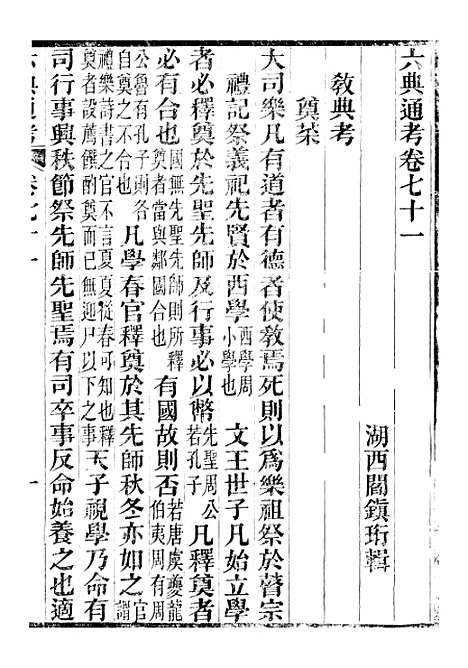 六典通考卷七十一
湖西閻鎮珩輯
教典考
奠菜
大司樂凡有道者有德者使教焉死則以爲樂祖祭於瞽宗
禮記祭義祀先賢於西學西學周小學也 文王世子凡始立學
者必釋奠於先聖先師及行事必以幣先聖周公若孔子 凡釋奠者
必有合也國無先聖先師則所釋奠者當與鄰國合也 有國故則否若唐虞夔龍伯夷周有周
公魯有孔子則各自奠之不合也 凡學春官釋奠於其先師秋冬亦如之官謂
禮樂詩書之官不言夏夏從春可知也釋奠者設薦饌酌奠而已無迎尸以下之事 天子視學乃命有
司行事興秋節祭先師先聖焉有司卒事反命始養之也適
六典通考 卷七十一 一